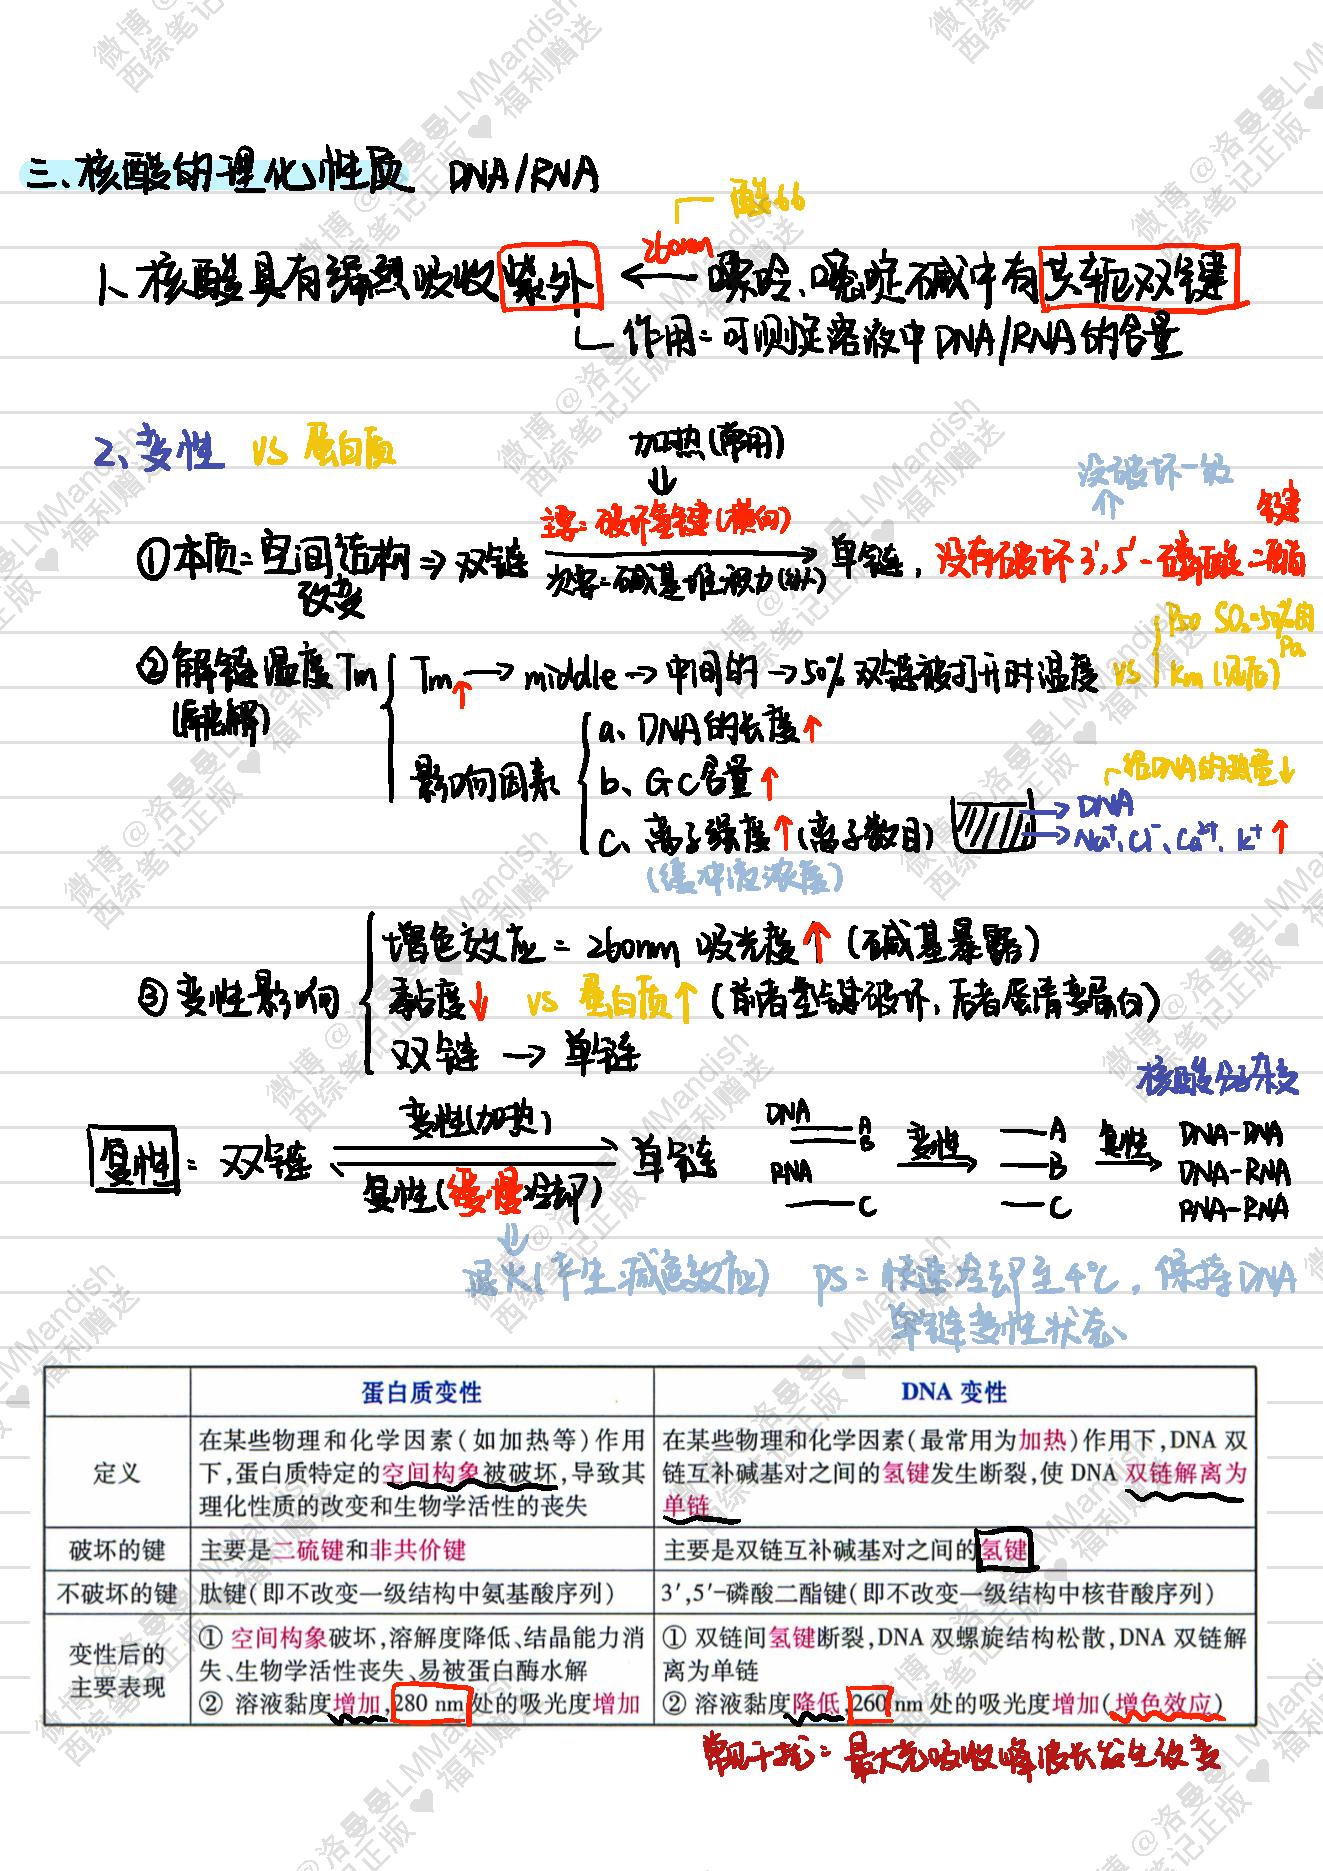 三、核酸的理化性质 DNA/RNA
酸66
260nm
1、核酸具有强烈吸收紫外 ← 嘌呤、嘧啶碱中有共轭双键
作用=可测定溶液中DNA/RNA的含量
2、变性 VS 蛋白质
加热(常用)
没破坏一级
主要=破坏氢键(横向)
键
①本质=空间结构⇒双链 → 单链,没有破坏3',5'-磷酸二酯
改变
次要=碱基堆积力(纵)
P50 SO2=50%的
Pa
②解链温度Tm Tm↑→middle→中间的→50%双链被打开时温度 VS Km(见后)
影响因素
a、DNA的长度↑
b、GC含量↑
c、离子强度↑(离子数目)
(缓冲液浓度)
给DNA的热量↓
→DNA
→Na⁺、Cl⁻、Ca²⁺、K⁺↑
③变性影响
增色效应=260nm 吸光度↑(碱基暴露)
黏度↓ VS 蛋白质↑(前者氢键破坏、后者)
双链→单链
核酸分子杂交
变性(加热)
复性=双链 单链
复性(缓慢冷却)
DNA A B
RNA C
变性
A
B
C
复性
DNA-DNA
DNA-RNA
RNA-RNA
退火(产生减色效应) ps=快速冷却至4℃,保持DNA
单链变性状态、
蛋白质变性 DNA 变性
定义
在某些物理和化学因素(如加热等)作用
下,蛋白质特定的空间构象被破坏,导致其
理化性质的改变和生物学活性的丧失
在某些物理和化学因素(最常用为加热)作用下,DNA 双
链互补碱基对之间的氢键发生断裂,使 DNA 双链解离为
单链
破坏的键 主要是二硫键和非共价键 主要是双链互补碱基对之间的氢键
不破坏的键 肽键(即不改变一级结构中氨基酸序列) 3′,5′-磷酸二酯键(即不改变一级结构中核苷酸序列)
变性后的
主要表现
① 空间构象破坏,溶解度降低、结晶能力消
失、生物学活性丧失、易被蛋白酶水解
② 溶液黏度增加,280 nm 处的吸光度增加
① 双链间氢键断裂,DNA 双螺旋结构松散,DNA 双链解
离为单链
② 溶液黏度降低,260 nm 处的吸光度增加(增色效应)
常见干扰=最大光吸收峰波长发生改变
微博 @洛曼曼LMMandish
西综笔记正版 ♥ 福利赠送